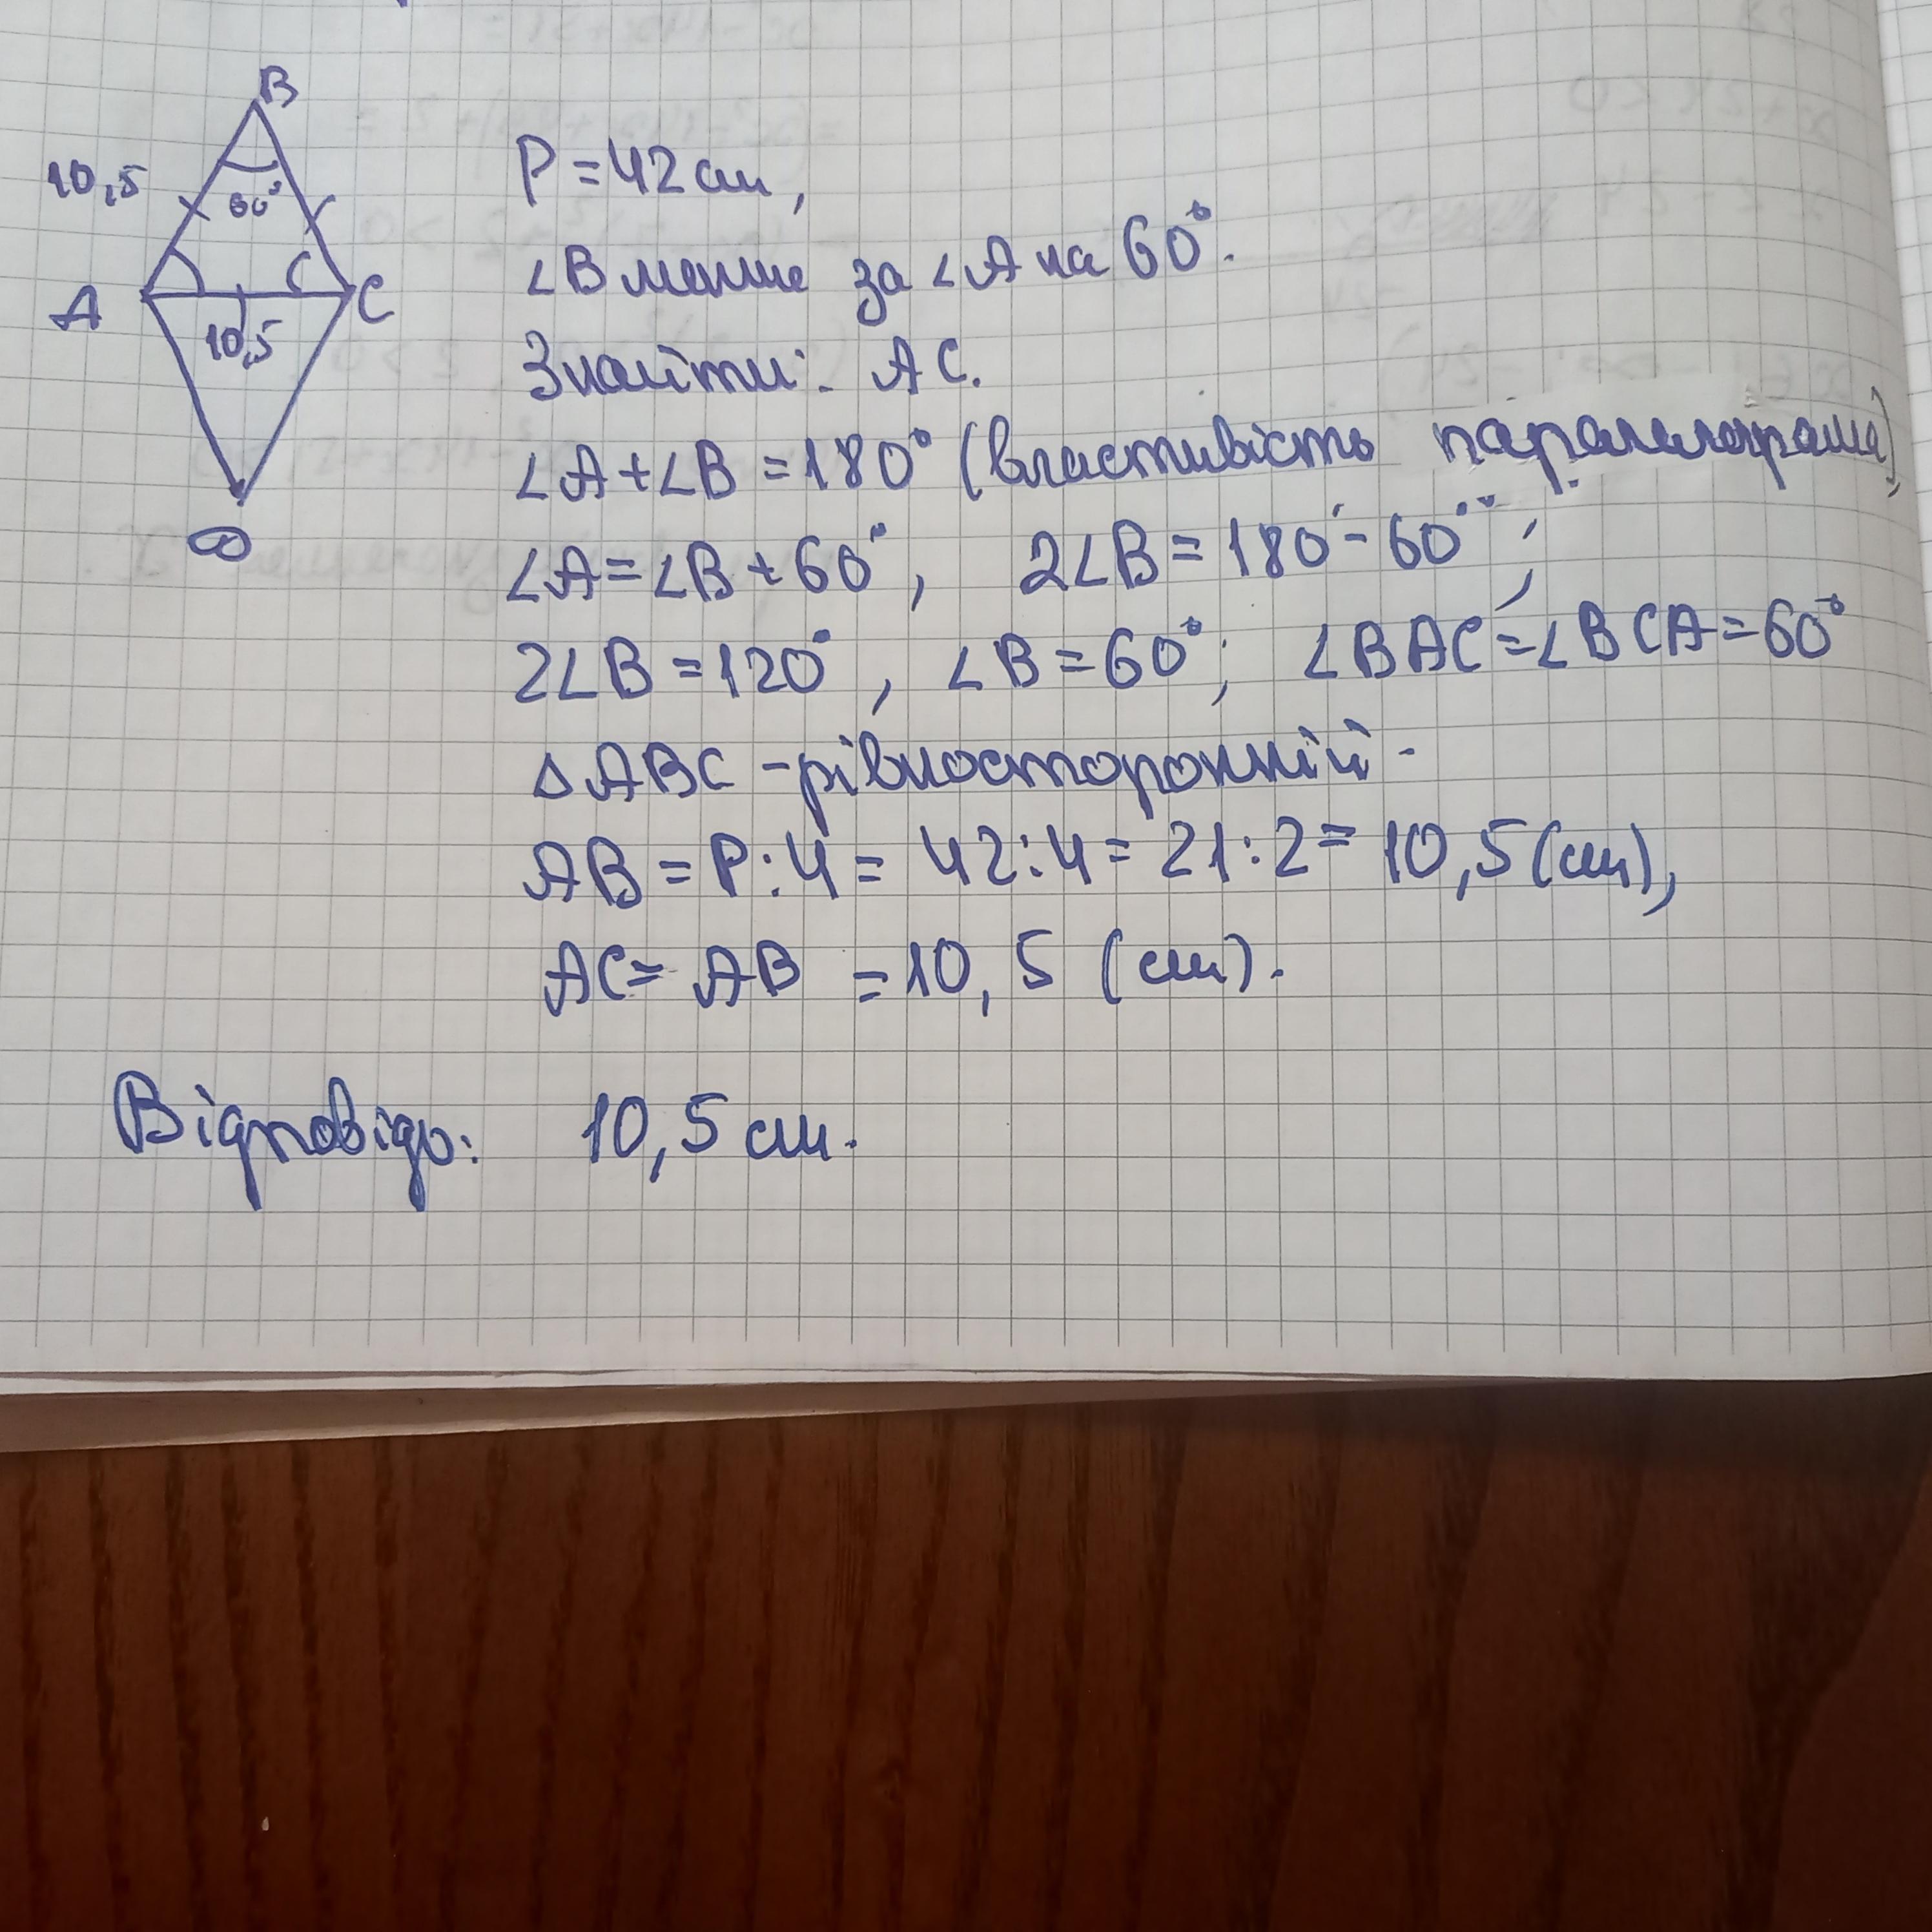 B
10,5
60°
A
C
10,5
D
P = 42 см,
∠B менше за ∠A на 60°.
Знайти: AC.
∠A + ∠B = 180° (властивість паралелограма),
∠A = ∠B + 60°, 2∠B = 180° - 60°;
2∠B = 120°, ∠B = 60°; ∠BAC = ∠BCA = 60°
△ABC - рівносторонній.
AB = P : 4 = 42 : 4 = 21 : 2 = 10,5 (см),
AC = AB = 10,5 (см).
Відповідь: 10,5 см.